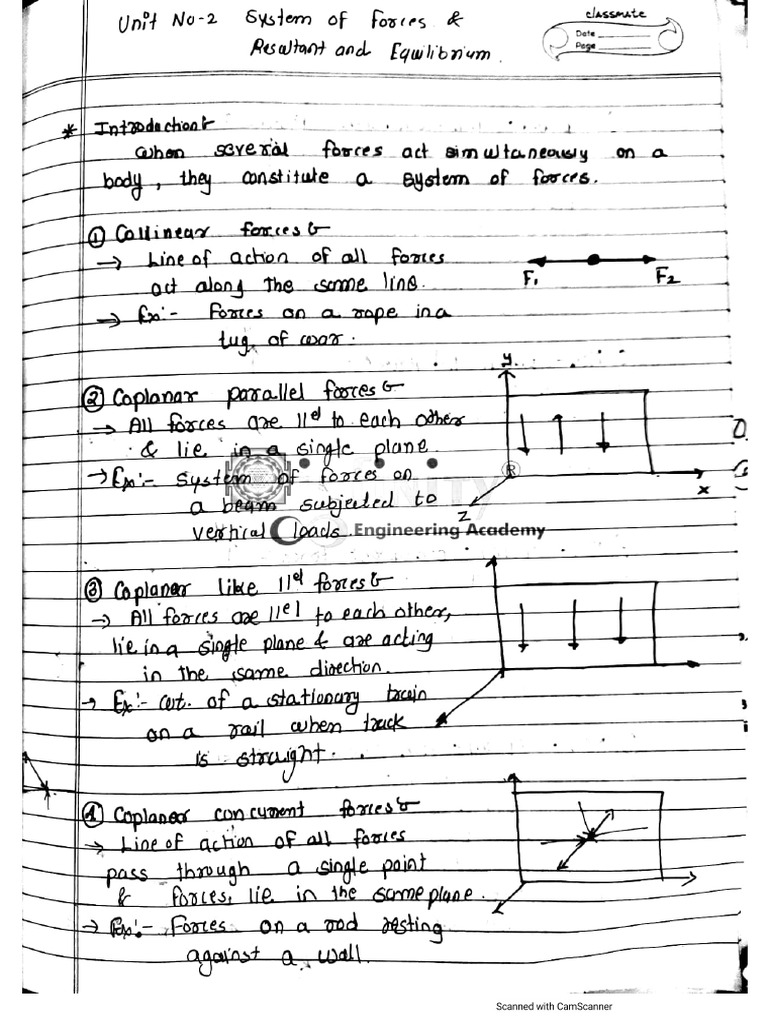 Unit No-2 System of Forces &
Resultant and Equilibrium
classmate
Date
Page
* Introduction:-
When several forces act simultaneously on a
body, they constitute a system of forces.
① Collinear forces:-
→ Line of action of all forces
act along the same line.
→ Ex:- Forces on a rope in a
tug of war.
F1 F2
② Coplanar parallel forces:-
→ All forces are llel to each other
& lie in a single plane.
→ Ex:- System of forces on
a beam subjected to
vertical loads
y
x
Z
R
Engineering Academy
③ Coplaner like llel forces:-
→ All forces are llel to each other,
lie in a single plane & are acting
in the same direction.
→ Ex:- wt. of a stationary train
on a rail when track
is straight.
④ Coplaner concurrent forces:-
→ Line of action of all forces
pass through a single point
& forces, lie in the same plane.
→ Ex:- Forces on a rod resting
against a wall.
Scanned with CamScanner